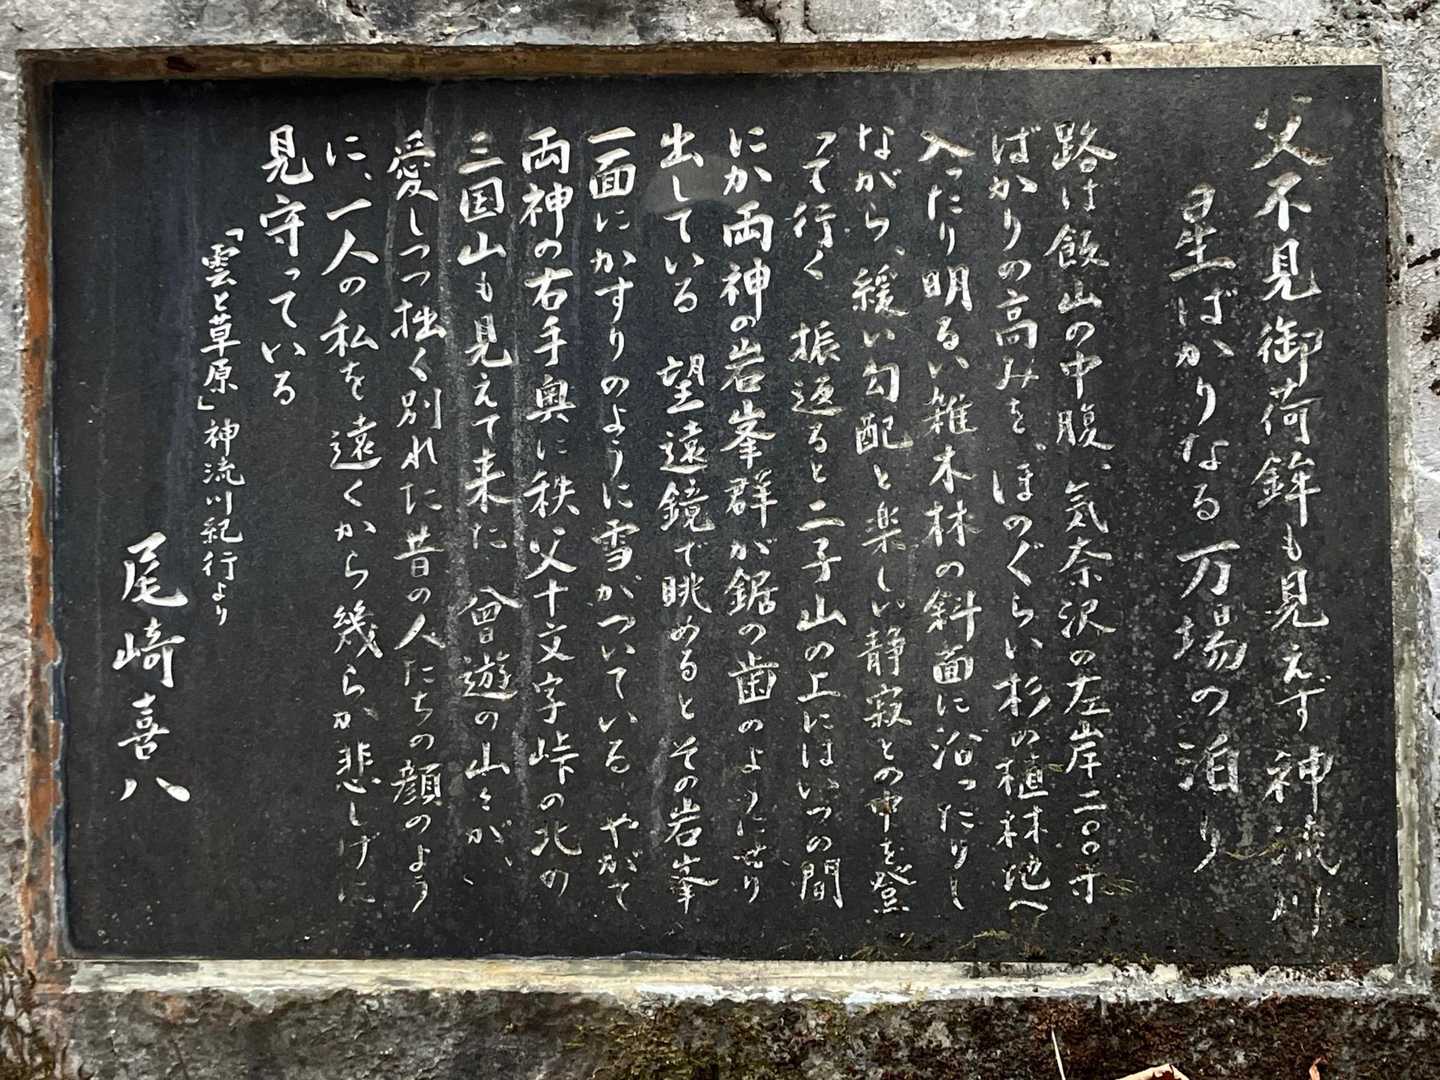 父不見御荷鉾も見えず神流川
星ばかりなる万場の泊り
路は飯山の中腹、気奈沢の左岸二〇〇米
ばかりの高みを、ほのぐらい杉の植林地へ
入ったり明るい雑木林の斜面に沿ったりし
ながら、緩い勾配と楽しい静寂との中を登
って行く 振返ると二子山の上にはいつの間
にか両神の岩峯群が鋸の歯のようにせり
出している 望遠鏡で眺めるとその岩峯
一面にかすりのように雪がついている やがて
両神の右手奥に秩父十文字峠の北の
三国山も見えて来た 曾遊の山々が、
愛しつつ拙く別れた昔の人たちの顔のよう
に、一人の私を遠くから幾らか悲しげに
見守っている
「雲と草原」神流川紀行より
尾崎喜八